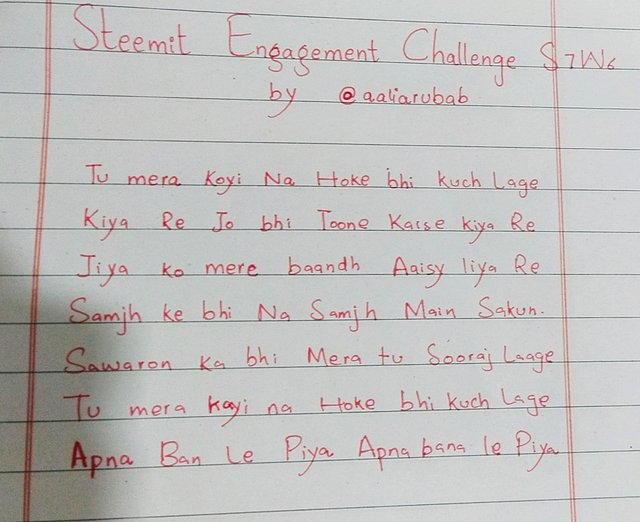 Steemit Engagement Challenge S7W6
by @aaliarubab
Tu mera Koyi Na Hoke bhi Kuch Lage
Kiya Re Jo bhi Toone Kaise Kiya Re
Jiya ko mere baandh Aaisy liya Re
Samjh ke bhi Na Samjh Main Sakun.
Sawaron Ka bhi Mera tu Sooraj Laage
Tu mera Koyi na Hoke bhi Kuch Lage
Apna Ban Le Piya Apna bana le Piya